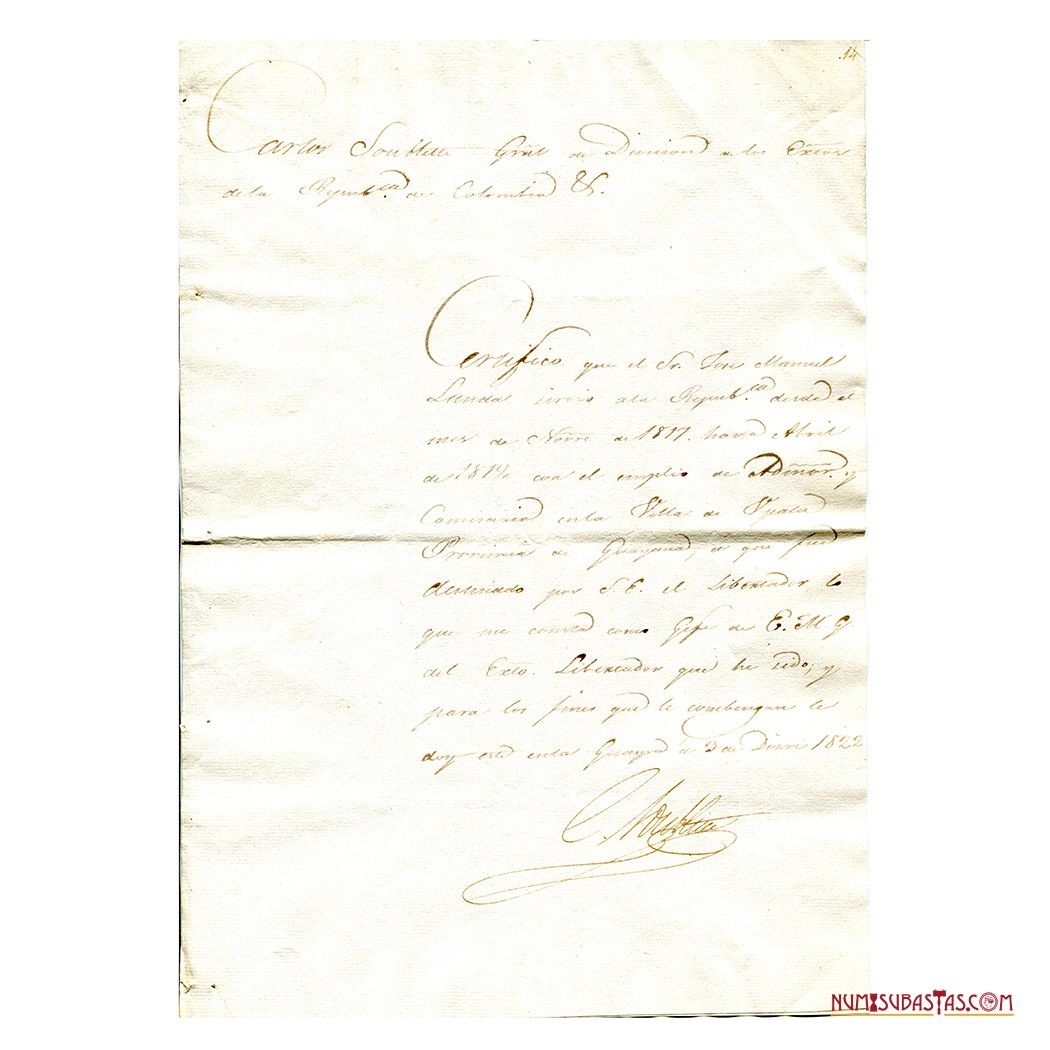 14
Carlos Soublette Gral de Division de los Extos
de la Repub.ca de Colombia &.
Certifico que el Sr. Jose Manuel
sirvio a la Repub.ca desde el
mes de Novre de 1817. hasta Abril
de 1819 con el empleo de Admor. y
Comisario en la Villa de Upata
Provincia de Guayana, a que fue
destinado por S. E. el Libertador, lo
que me consta como Gefe de E. M. G.
del Exto. Libertador que he sido; y
para los fines que le combengan le
doy este en la Guayra a 3 de Dicre 1822
C. Soublette
NUMISUBASTAS.COM